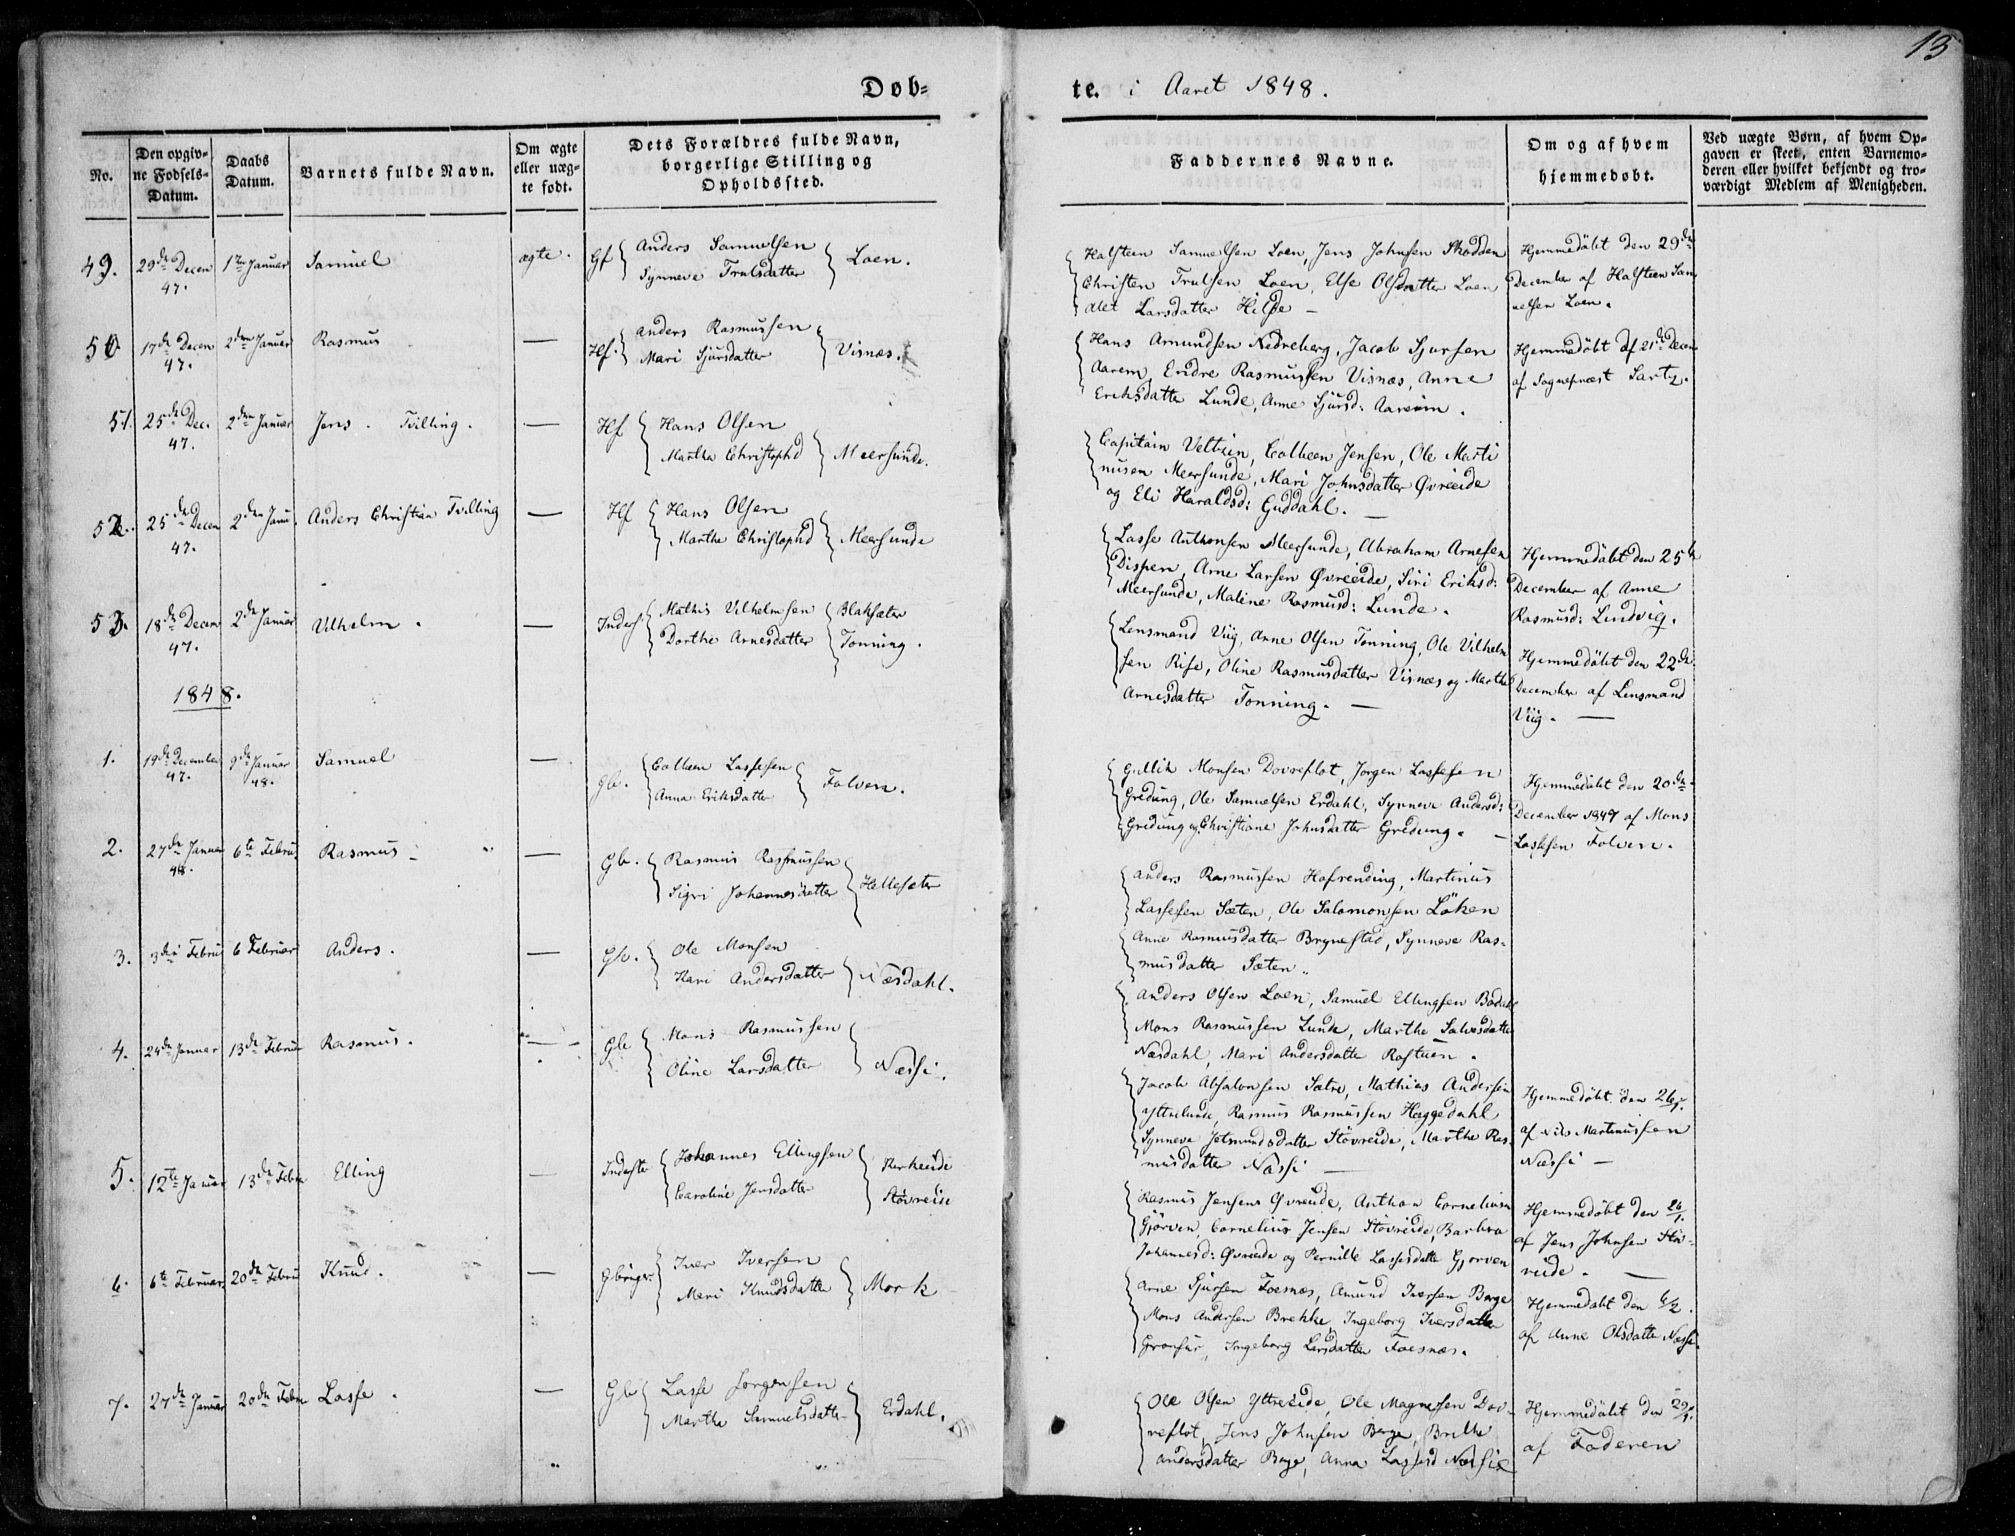 13
Døb=
te. i Aaret 1848.
No.
Den opgiv-
ne Fødsels-
Datum.
Daabs
Datum.
Barnets fulde Navn.
Om ægte
eller uæg-
te født.
Dets Forældres fulde Navn,
borgerlige Stilling og
Opholdssted.
Faddernes Navne.
Om og af hvem
hjemmedøbt.
Ved uægte Børn, af hvem Op-
gaven er skeet, enten Barnemo-
deren eller hvilket bekjendt og tro-
værdigt Medlem af Menigheden.
49. 29de Decem 47. 1ste Januar Samuel ægte. Gf
Anders Samuelsen
Synneve Trulsdatter
Loen.
Halsteen Samuelsen Loen, Jens Johnsen Skodden
Christen Trulsen Loen, Else Olsdatter Loen
Larsdatter Hilde –
Hjemmedöbt den 29de
December af Halsteen Sam
uelsen Loen.
50 17de Decem 47. 2den Januar Rasmus — Hf.
Anders Rasmussen
Mari Sjursdatter
Visnæs.
Hans Amundsen Nedreberg, Jacob Sjursen
Aarem, Endre Rasmussen Visnæs, Anne
Eriksdatter Lunde, Anne Sjursd: Aarem.
Hjemmedöbt d 21de Decem
af Sogneprest Sartz.
51. 25de Dec. 47. 2den Januar Jens. Tvilling. — Hf
Hans Olsen
Martha Christophd
Meersunde.
Capitain Veltzin, Colbeen Jensen, Ole Marti
nusen Meersunde, Mari Johnsdatter Øvreeide
og Eli Haraldsd: Guddahl. —
52. 25de Decem 47. 2den Janu. Anders Christian Tvilling — Hf
Hans Olsen
Marthe Christophd
Meersunde
Lasse Anthonsen Meersunde, Abraham Arnesen
Dispen, Arne Larsen Øvreeide, Siri Eriksd:
Meersunde, Maline Rasmusd: Lunde.
Hjemmedöbt den 25de
December af Anne
Rasmusd: Lindvig.
53. 18de Decem 47. 2den Januar Vilhelm. — Inderst
Mathis Vilhelmsen
Dorthe Arnesdatter
Blaksæter
Tonning.
Lensmand Viig, Arne Olsen Tonning, Ole Vilhelm
sen Rise, Oline Rasmusdatter Visnæs og Marthe
Arnesdatter Tonning. —
Hjemmedöbt den 22de
December af Lensmand
Viig. —
1848.
1. 19de December 47. 9de Januar 48. Samuel — Gb.
Colbeen Lassesen
Anna Eriksdatter
Folven.
Gullik Monsen Dovreflot, Jorgen Lassesen
Gredung, Ole Samuelsen Erdahl, Synneve Andersd:
Gredung og Christiane Johnsdatter Gredung. —
Hjemmedöbt den 20de
December 1847 af Mons
Lassesen Folven.
2. 27de Januar 48. 6te Februa Rasmus — Gb.
Rasmus Rasmussen
Sigri Johannesdatter
Hellesæter
Anders Rasmussen Hafrending, Martinus
Lassesen Sæten, Ole Salomonsen Löken
Anne Rasmusdatter Brynestad, Synneve Ras-
musdatter Sæten.
3. 3die Februa 6 Februar Anders. — Gb.
Ole Monsen
Kari Andersdatter
Næsdahl.
Anders Olsen Loen, Samuel Ellingsen Bødahl
Mons Rasmussen Lunde, Marthe Salvesdatter
Næsdahl, Mari Andersdatter Røstuen.
4. 24de Januar 13de Februar Rasmus. — Gb
Mons Rasmussen
Oline Larsdatter
Næssi.
Jacob Absalonsen Sætre, Mathias Andersen
Yttrelunde, Rasmus Rasmussen Heggedahl
Synneve Jetmundsdatter Stövreide, Marthe Ras-
musdatter Næssi —
Hjemmedöbt den 26/1.
af Nils Martinussen
Næssi —
5. 12te Januar 13de Febru Elling — Inderste
Johannes Ellingsen
Caroline Jensdatter
Kirkeeide
Støvreide
Rasmus Jensens Øvreeide, Anthon Cornelius
Gjörven, Cornelius Jensen Stövreide, Barbra
Johannesd: Øvreeide og Pernille Lassesdatter Gjorven
Hjemmedöbt den 26/1.
af Jens Johnsen Stöv-
reide. —
6. 6te Februar 20de Februa Knud. —
Iver Iversen
Mari Knudsdatter
Mork
Arne Sjursen Foesnæs, Amund Iversen Berge
Mons Andersen Brekke, Ingeborg Iversdatter
Ingeborg Larsdatter Foesnæs.
Hjemmedøbt den 6/2.
af Anne Olsdatter Næssi.
7. 27de Januar 20de Febru Lasse. — Gb
Lasse Jorgensen
Marthe Samuelsdatter
Erdahl.
Ole Olsen Yttreeide, Ole Magnesen Dov-
reflot, Jens Johnsen Berge, Brithe
Andersdatter Berge, Anna Lassesd Næssie
Hjemmedöbt den 29/1.
af Faderen